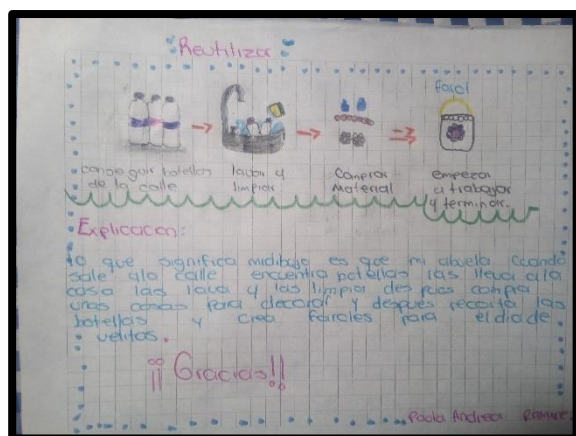 Reutilizar
Farol
conseguir botellas
de la calle
lavar y
limpiar
Comprar
Material
empezar
a trabajar
y terminar.
Explicacion:
lo que significa midibujo es que mi abuela cuando
sale ala calle encuentra botellas las lleva ala
casa las lava y las limpia des pues compra
unas cosas para decorar y despues recorta las
botellas y crea faroles para el dia de
velitas.
¡¡Gracias!!
Paola Andrea